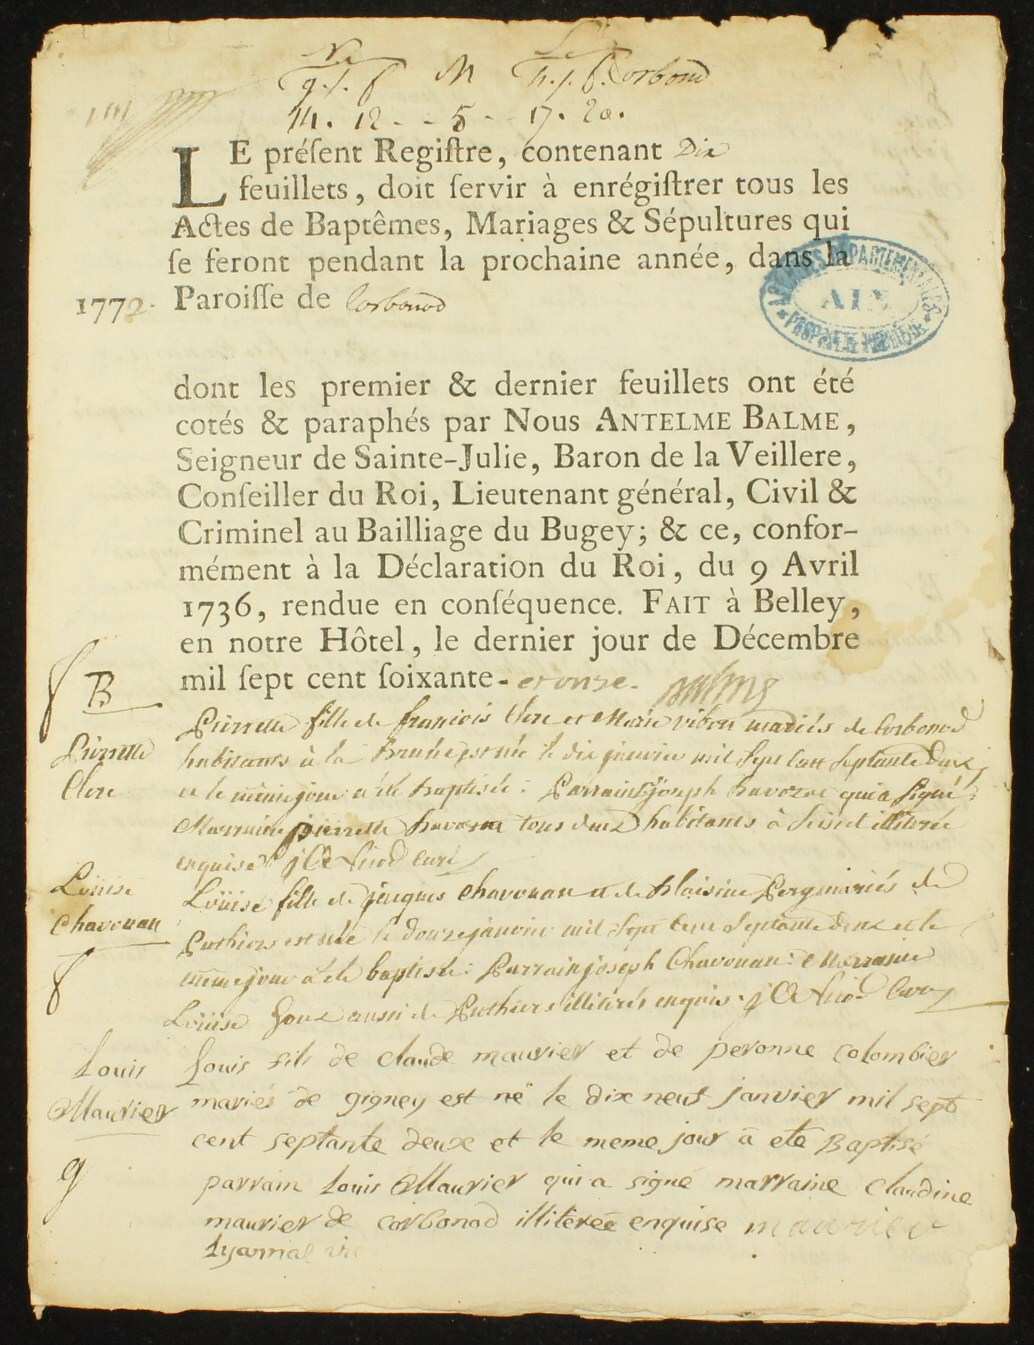 Na M Se
g. f. h. f. Corbond
14. 12 - - 5 - 17. 20.
LE présent Registre, contenant Dix
feuillets, doit servir à enrégistrer tous les
Actes de Baptêmes, Mariages & Sépultures qui
se feront pendant la prochaine année, dans la
1772. Paroisse de Corbonod
ARCHIVES DÉPARTEMENTALES
AIN
PROPRIÉTÉ PUBLIQUE
dont les premier & dernier feuillets ont été
cotés & paraphés par Nous ANTELME BALME,
Seigneur de Sainte-Julie, Baron de la Veillere,
Conseiller du Roi, Lieutenant général, Civil &
Criminel au Bailliage du Bugey; & ce, confor-
mément à la Déclaration du Roi, du 9 Avril
1736, rendue en conséquence. FAIT à Belley,
en notre Hôtel, le dernier jour de Décembre
mil sept cent soixante-et onze. Balme
f B
Pierrette Clere
Pierrette fille de françois Clere et Marie ribon mariés de Corbonod
habitants à la est née le dix janvier mil sept cent septante deux
et le même jour a été baptisée: Parrain joseph qui a signé;
Marraine pierrette tous deux habitants à Seissel illiterée
enquise curé
Louise Chavonan
Loüise fille de jacques Chavonan et de blaisine mariés de
Puthiers est née le douze janvier mil sept cent septante deux et le
même jour a été baptisée: Parrain joseph Chavonan: Marraine
f
Loüise aussi de Puthiers illitérés enquis. curé
Louis Maurier
Louis fils de claude maurier et de peronne colombier
mariés de gigney est né le dix neuf janvier mil sept
cent septante deux et le meme jour a eté Baptisé
g
parrain Louis Maurier qui a signé marraine claudine
maurier de corbonod illiterée enquise maurier
Lyarnal vic